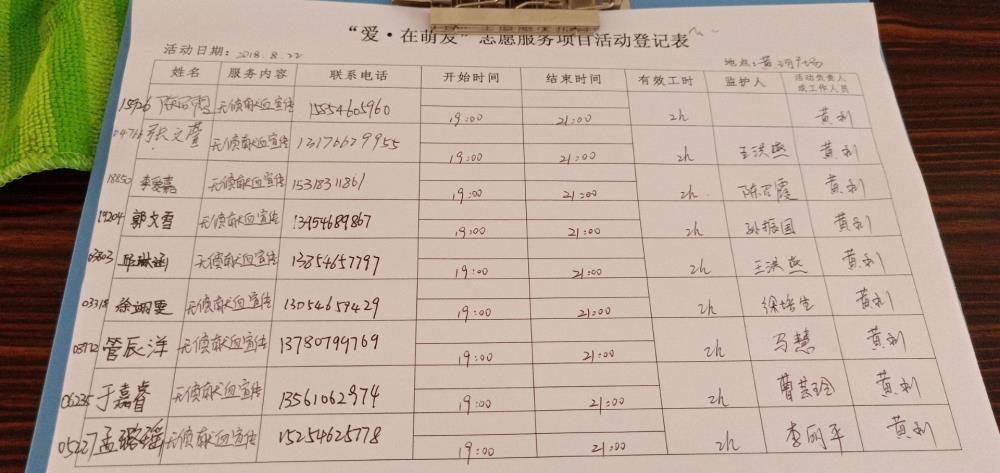 “爱·在萌发”志愿服务项目活动登记表
活动日期：2018.8.22 地点：黄河广场
姓名 服务内容 联系电话 开始时间 结束时间 有效工时 监护人 活动负责人或工作人员
15926 无偿献血宣传 15854605960 19:00 21:00 2h 黄利
张文萱 无偿献血宣传 19:00 21:00 2h 王洪燕 黄利
18850 李爱嘉 无偿献血宣传 15318311861 19:00 21:00 2h 陈召霞 黄利
19204 郭文雪 无偿献血宣传 13954689867 19:00 21:00 2h 孙振国 黄利
03803 邱琳涵 无偿献血宣传 13854657797 19:00 21:00 2h 王洪燕 黄利
03318 徐翊雯 无偿献血宣传 13054659429 19:00 21:00 2h 徐培生 黄利
03972 管辰洋 无偿献血宣传 13780799769 19:00 21:00 2h 马慧 黄利
06235 于嘉睿 无偿献血宣传 13561062974 19:00 21:00 2h 曹芸玲 黄利
05227 孟璐瑶 无偿献血宣传 15254625778 19:00 21:00 2h 李明平 黄利